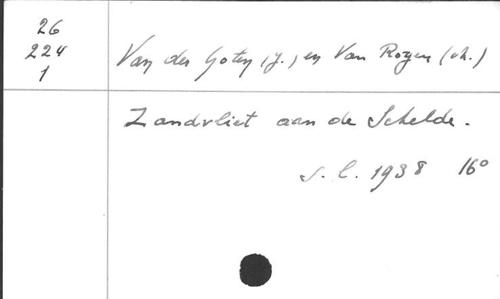 26
224
1
Van der Goten (J.) en Van Rogen (ch.)
Zandvliet aan de Schelde.
s. l. 1938 16°